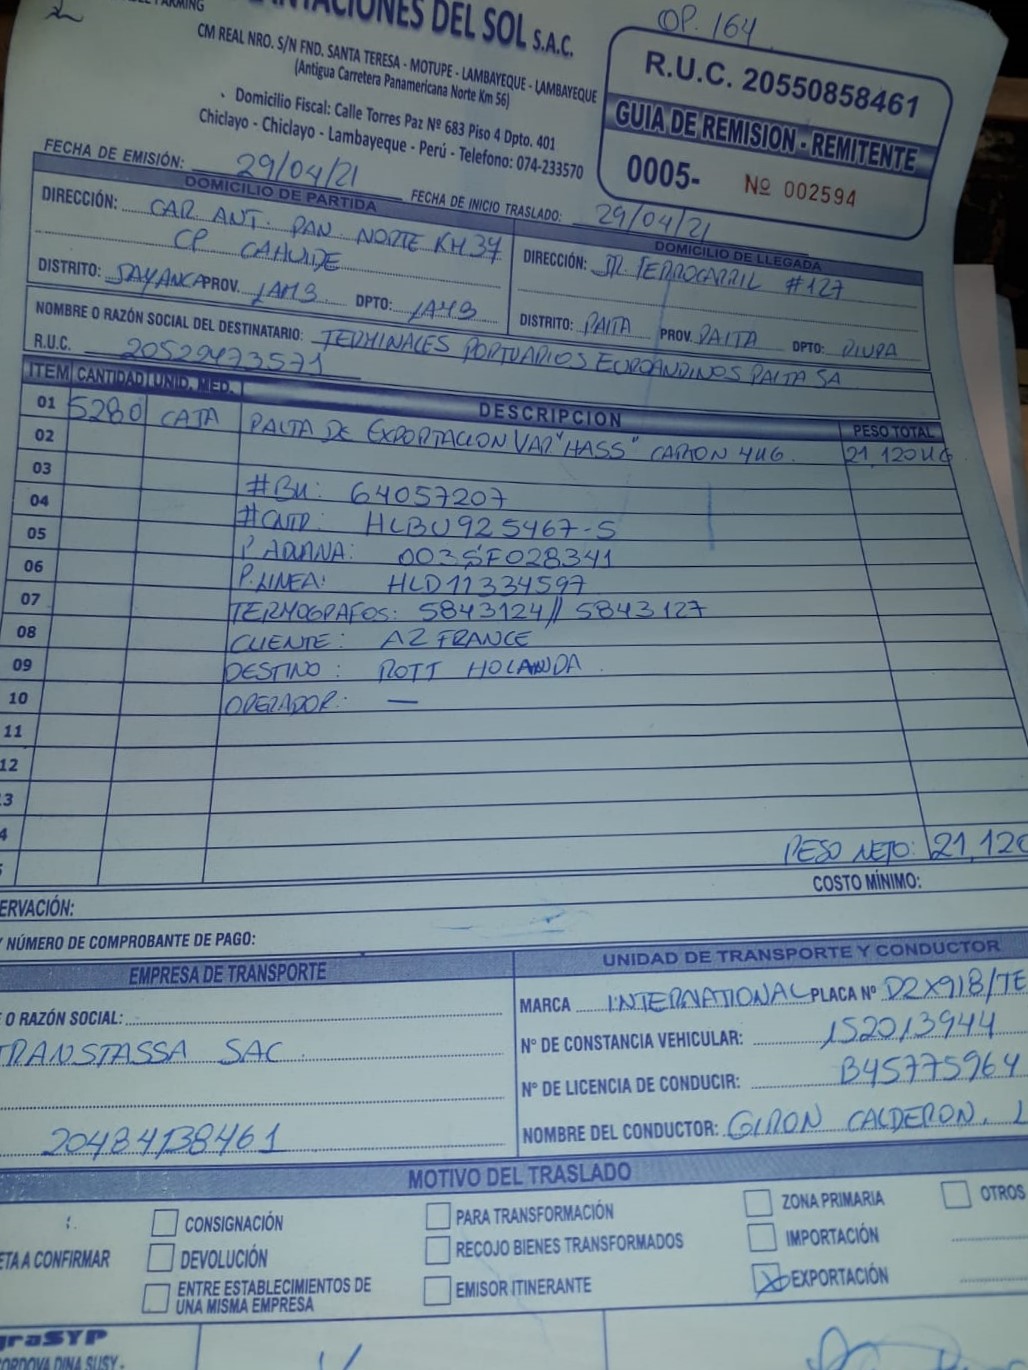 FARMING
OP. 164
DEL SOL S.A.C.
CM REAL NRO. S/N FND. SANTA TERESA - MOTUPE - LAMBAYEQUE - LAMBAYEQUE
(Antigua Carretera Panamericana Norte Km 56)
Domicilio Fiscal: Calle Torres Paz Nº 683 Piso 4 Dpto. 401
Chiclayo - Chiclayo - Lambayeque - Perú - Telefono: 074-233570
R.U.C. 20550858461
GUIA DE REMISION - REMITENTE
0005- Nº 002594
FECHA DE EMISIÓN: 29/04/21
FECHA DE INICIO TRASLADO: 29/04/21
DOMICILIO DE PARTIDA
DIRECCIÓN: CAR. ANT. PAN. NORTE KM 37
CP CAHUIDE
DISTRITO: JAYANCA PROV. LAMB DPTO: LAMB
DOMICILIO DE LLEGADA
DIRECCIÓN: JR. FERROCARRIL #127
DISTRITO: PAITA PROV. PAITA DPTO: PIURA
NOMBRE O RAZÓN SOCIAL DEL DESTINATARIO: TERMINALES PORTUARIOS EUROANDINOS PAITA SA
R.U.C. 20529473571
ITEM CANTIDAD UNID. MED. DESCRIPCION PESO TOTAL
01 5280 CAJA PALTA DE EXPORTACION VAR "HASS" CARTON 4KG. 21,120KG
02
03 #BK: 64057207
04 #CNTR: HLBU925467-5
05 P. ADUANA: 003SF028341
06 P. LINEA: HLD11334597
07 TERMOGRAFOS: 5843124// 5843127
08 CLIENTE: AZ FRANCE
09 DESTINO: ROTT HOLANDA
10 OPERADOR: —
11
12
3
4
PESO NETO: 21,120
COSTO MÍNIMO:
ERVACIÓN:
NÚMERO DE COMPROBANTE DE PAGO:
EMPRESA DE TRANSPORTE
O RAZÓN SOCIAL:
TRANSTASSA SAC
20484138461
UNIDAD DE TRANSPORTE Y CONDUCTOR
MARCA INTERNATIONAL PLACA Nº D2X918/TE
Nº DE CONSTANCIA VEHICULAR: 152013944
Nº DE LICENCIA DE CONDUCIR: B45775964
NOMBRE DEL CONDUCTOR: GIRON CALDERON, L
MOTIVO DEL TRASLADO
CONSIGNACIÓN PARA TRANSFORMACIÓN ZONA PRIMARIA OTROS
ETA A CONFIRMAR DEVOLUCIÓN RECOJO BIENES TRANSFORMADOS IMPORTACIÓN
ENTRE ESTABLECIMIENTOS DE UNA MISMA EMPRESA EMISOR ITINERANTE EXPORTACIÓN
graSYP
CORDOVA DINA SUSY -